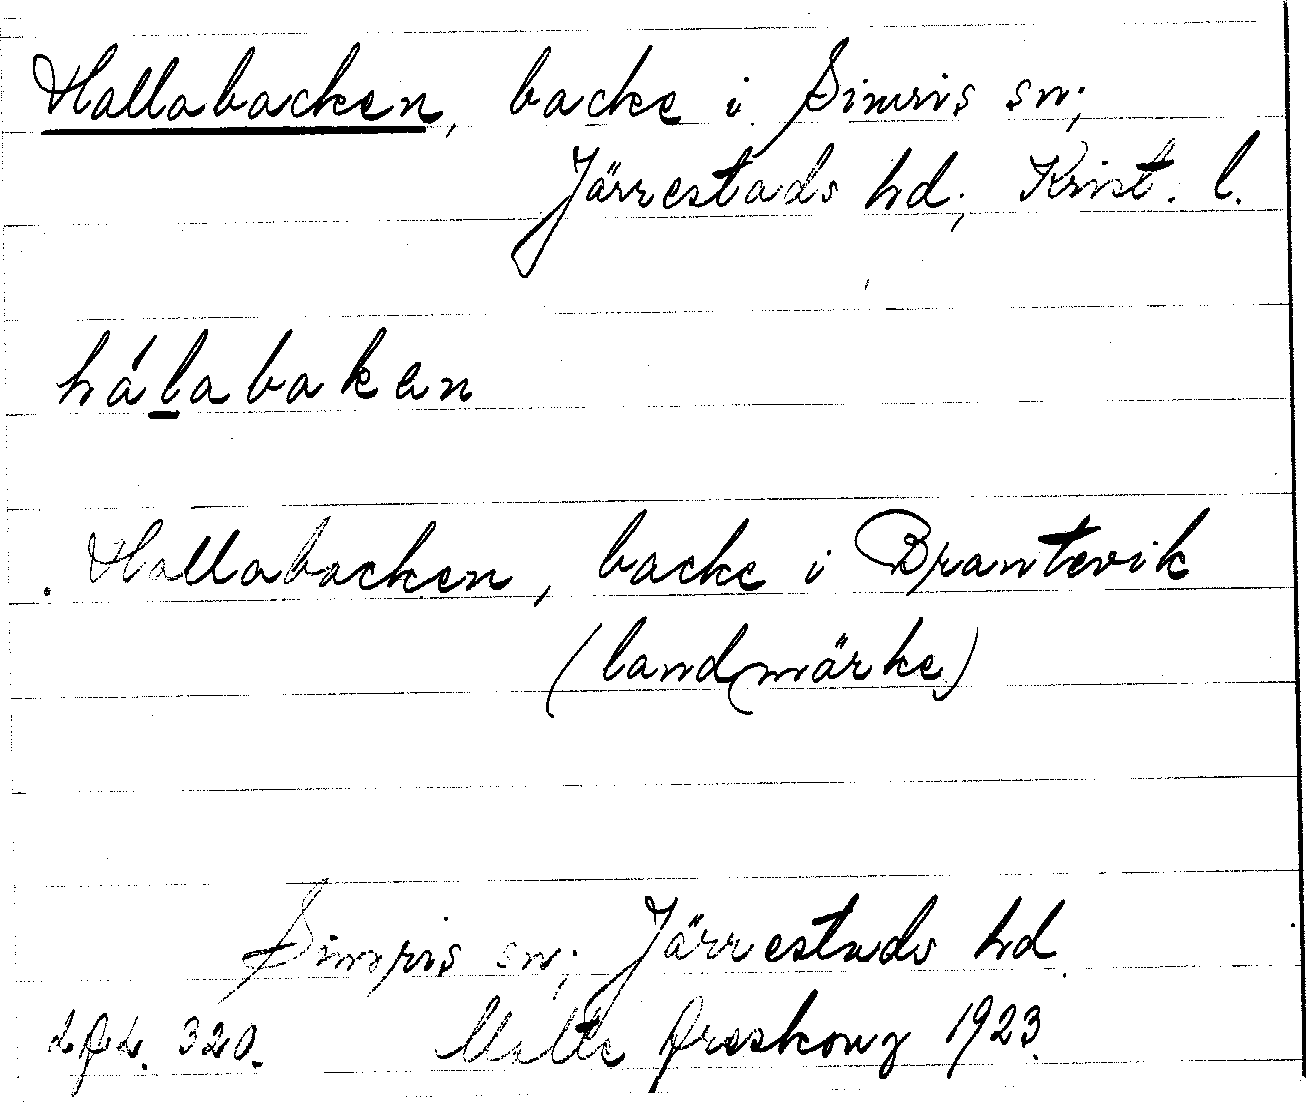 Hallabacken, backe i Simris sn;
Järrestads hd; Krist. l.
hálabakan
Hallabacken, backe i Brantevik
(landmärke)
Simris sn; Järrestads hd.
320. Mätta Kreskong 1923.